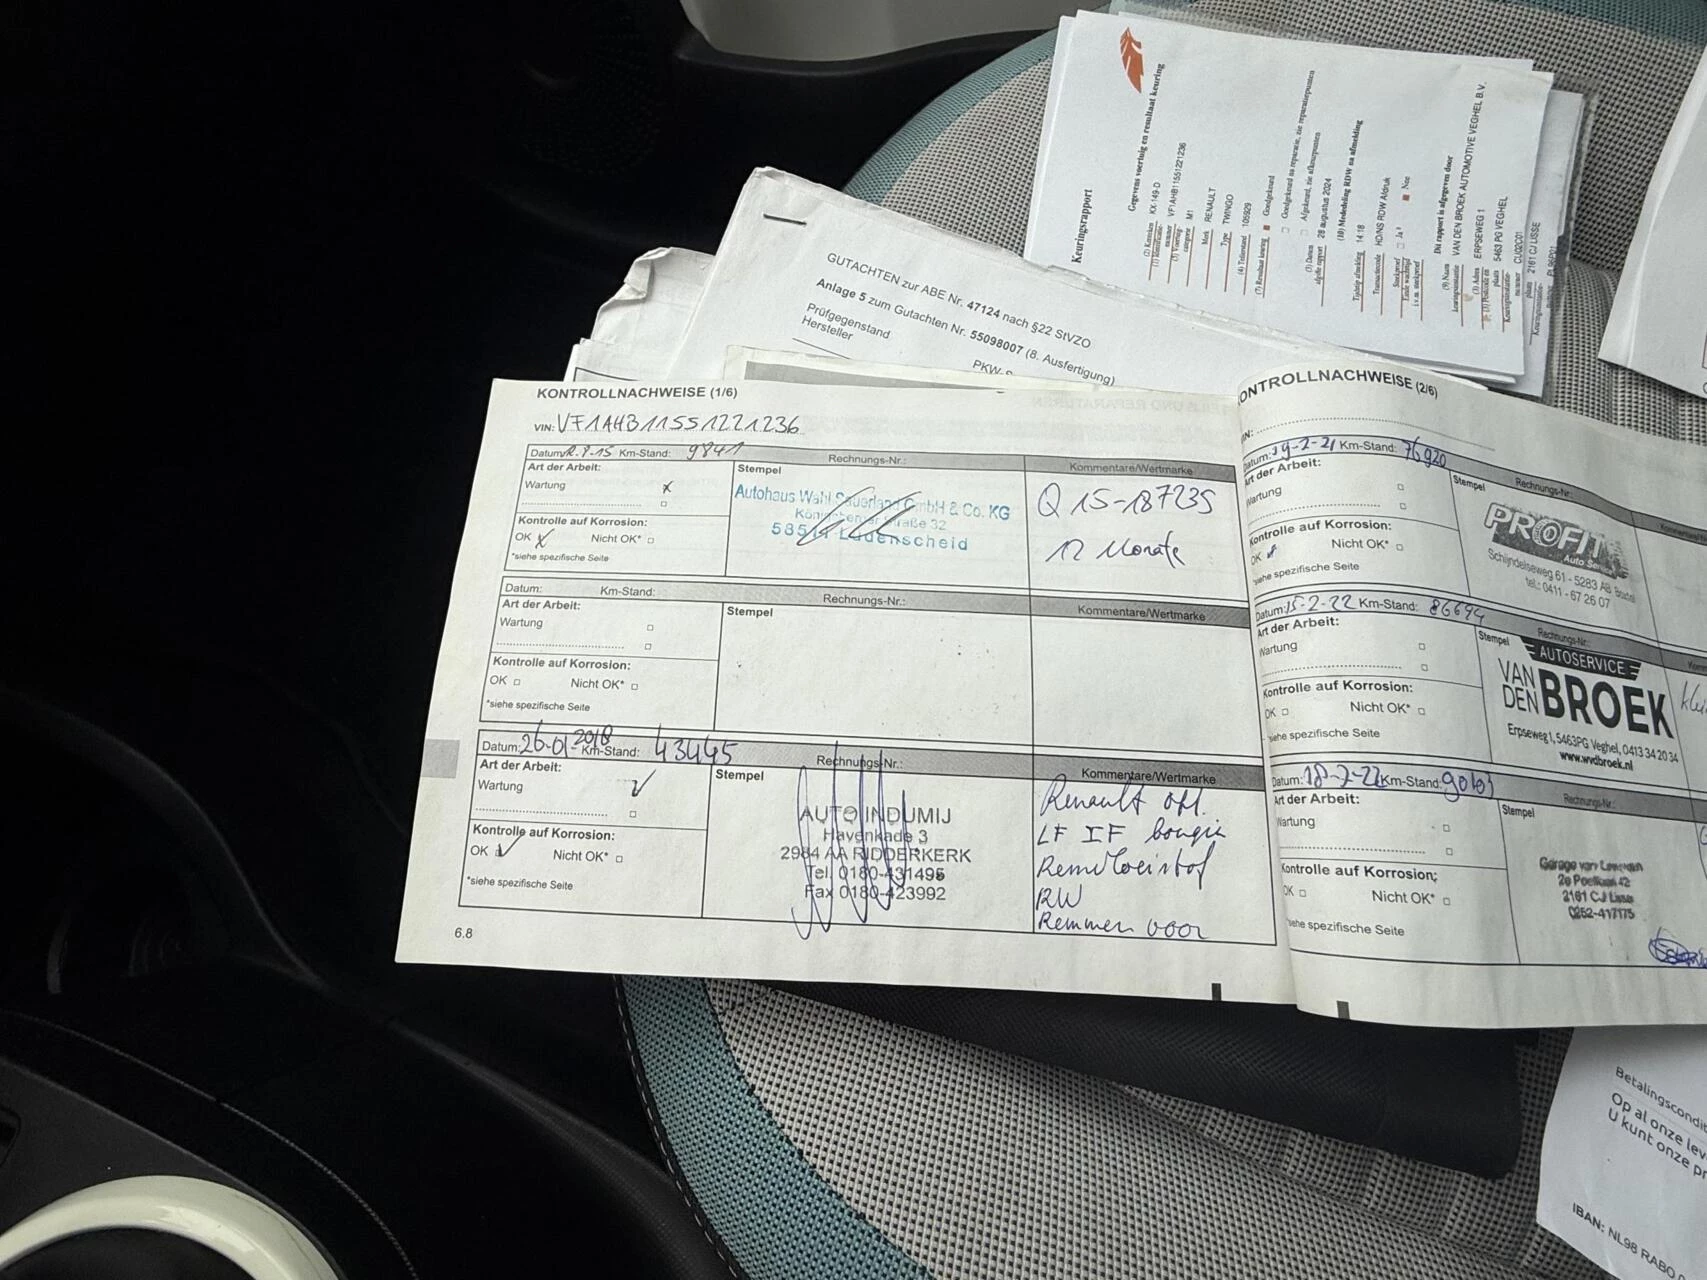 Keuringsrapport
Gegevens voertuig en resultaat keuring
(2) Kenteken KX-149-D
VF1AHB11551221236
M1
Merk RENAULT
Type TWINGO
(4) Tellerstand 105929
(7) Resultaat keuring Goedgekeurd
Goedgekeurd na reparatie, zie reparatiepunten
Afgekeurd, zie afkeurpunten
(3) Datum 28 augustus 2024
(10) Mededeling RDW na afmelding
Tijdstip afmelding 14:18
Transactiecode
Steekproef Ja Nee
Dit rapport is afgegeven door
(9) Naam VAN DEN BROEK AUTOMOTIVE VEGHEL B.V.
ERPSEWEG 1
5463 PG VEGHEL
2161 CJ LISSE
GUTACHTEN zur ABE Nr. 47124 nach §22 StVZO
Anlage 5 zum Gutachten Nr. 55098007 (8. Ausfertigung)
Prüfgegenstand
Hersteller
KONTROLLNACHWEISE (1/6)
VIN: VF1AHB11551221236
Km-Stand: 9841
Rechnungs-Nr.:
Kommentare/Wertmarke
Art der Arbeit:
Wartung
Kontrolle auf Korrosion:
OK Nicht OK*
*siehe spezifische Seite
Stempel
Autohaus Wahl Sauerland GmbH & Co. KG
Königsberger Straße 32
Lüdenscheid
Q 15-187235
12 Monate
Datum: Km-Stand: Rechnungs-Nr.: Kommentare/Wertmarke
Art der Arbeit:
Wartung
Kontrolle auf Korrosion:
OK Nicht OK*
*siehe spezifische Seite
Stempel
Datum: 26-01-2018 Km-Stand: 43445
Rechnungs-Nr.:
Kommentare/Wertmarke
Art der Arbeit:
Wartung
Kontrolle auf Korrosion:
OK Nicht OK*
*siehe spezifische Seite
Stempel
AUTO INDUMIJ
Havenkade 3
2984 AA RIDDERKERK
Tel. 0180-431495
Fax 0180-423992
Renault
LF IF bougie
Remvloeistof
RW
Remmen voor
6.8
KONTROLLNACHWEISE (2/6)
Km-Stand: 76920
Rechnungs-Nr.:
Art der Arbeit:
Wartung
Kontrolle auf Korrosion:
OK Nicht OK*
siehe spezifische Seite
Stempel
PROFIT
Auto Service
Schijndelseweg 61 - 5283 AB Boxtel
tel.: 0411 - 67 26 07
Datum: 15-2-22 Km-Stand: 86694
Rechnungs-Nr.:
Art der Arbeit:
Wartung
Kontrolle auf Korrosion:
OK Nicht OK*
siehe spezifische Seite
Stempel
AUTOSERVICE
VAN DEN BROEK
Erpseweg 1, 5463PG Veghel, 0413 34 20 34
www.wvdbroek.nl
Datum: Km-Stand:
Rechnungs-Nr.:
Art der Arbeit:
Wartung
Kontrolle auf Korrosion:
OK Nicht OK*
siehe spezifische Seite
Stempel
2161 CJ Lisse
0252-417175
Op al onze
U kunt onze
IBAN: NL98 RABO